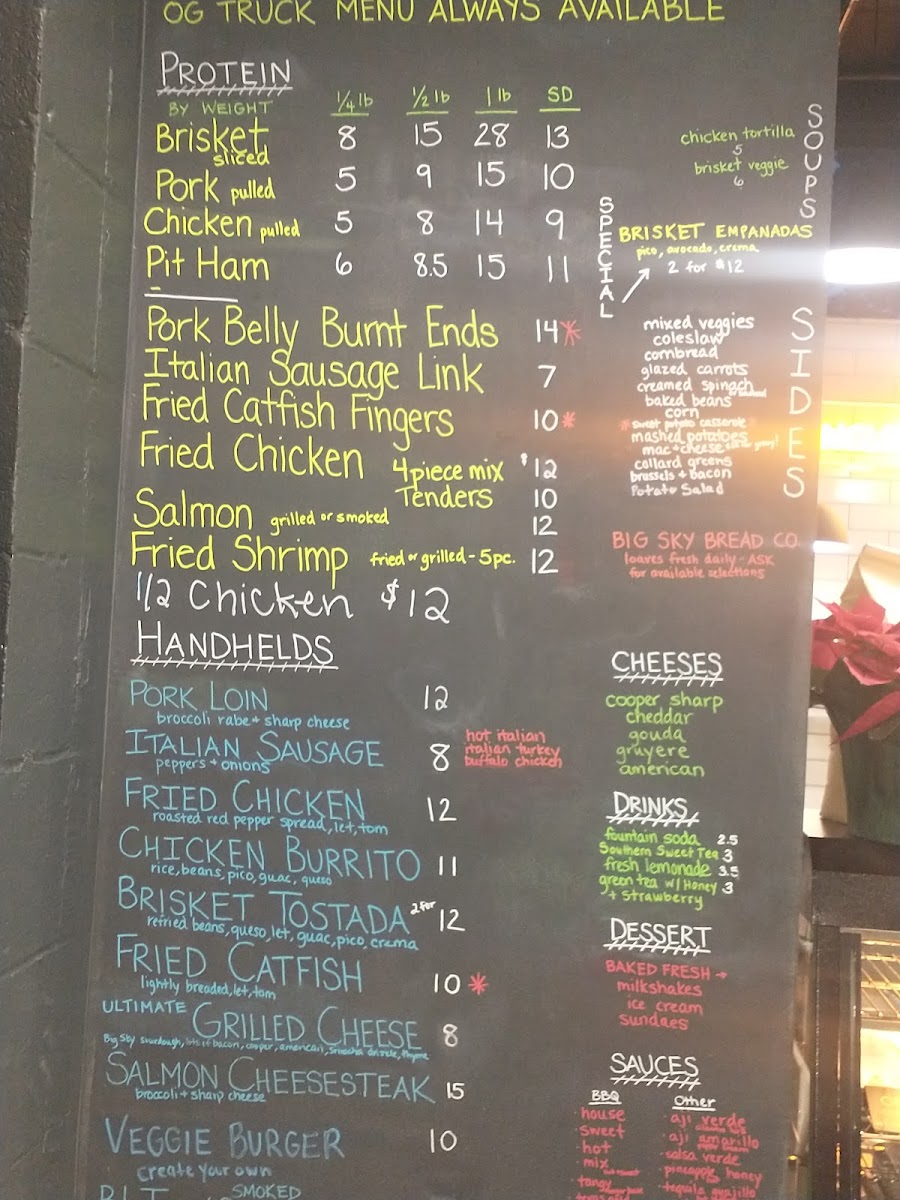 OG TRUCK MENU ALWAYS AVAILABLE
PROTEIN
BY WEIGHT 1/4 lb 1/2 lb 1 lb SD
Brisket sliced 8 15 28 13
Pork pulled 5 9 15 10
Chicken pulled 5 8 14 9
Pit Ham 6 8.5 15 11
Pork Belly Burnt Ends 14*
Italian Sausage Link 7
Fried Catfish Fingers 10*
Fried Chicken 4 piece mix $12
Tenders 10
Salmon grilled or smoked 12
Fried Shrimp fried or grilled - 5pc. 12
1/2 Chicken $12
HANDHELDS
PORK LOIN 12
broccoli rabe + sharp cheese
ITALIAN SAUSAGE 8
peppers + onions
hot italian
italian turkey
buffalo chicken
FRIED CHICKEN 12
roasted red pepper spread, let, tom
CHICKEN BURRITO 11
rice, beans, pico, guac, queso
BRISKET TOSTADA 2 for 12
refried beans, queso, let, guac, pico, crema
FRIED CATFISH 10*
lightly breaded, let, tom
ULTIMATE GRILLED CHEESE 8
Big Sky sourdough, bacon, cooper, american, sriracha drizzle, thyme
SALMON CHEESESTEAK 15
broccoli + sharp cheese
VEGGIE BURGER 10
create your own
BLT SMOKED
SOUPS
chicken tortilla
5
brisket veggie
6
SPECIAL
BRISKET EMPANADAS
pico, avocado, crema
2 for $12
SIDES
mixed veggies
coleslaw
cornbread
glazed carrots
creamed spinach
baked beans
corn
* sweet potato casserole
mashed potatoes
mac + cheese
collard greens
brussels + bacon
Potato Salad
BIG SKY BREAD CO.
loaves fresh daily - ASK
for available selections
CHEESES
cooper sharp
cheddar
gouda
gruyere
american
DRINKS
fountain soda 2.5
Southern Sweet Tea 3
fresh lemonade 3.5
green tea w/ Honey 3
+ strawberry
DESSERT
BAKED FRESH →
milkshakes
ice cream
sundaes
SAUCES
BBQ
· house
· sweet
· hot
· mix
· tangy
Other
· aji verde
· aji amarillo
· salsa verde
· pineapple honey
· tequila guajillo